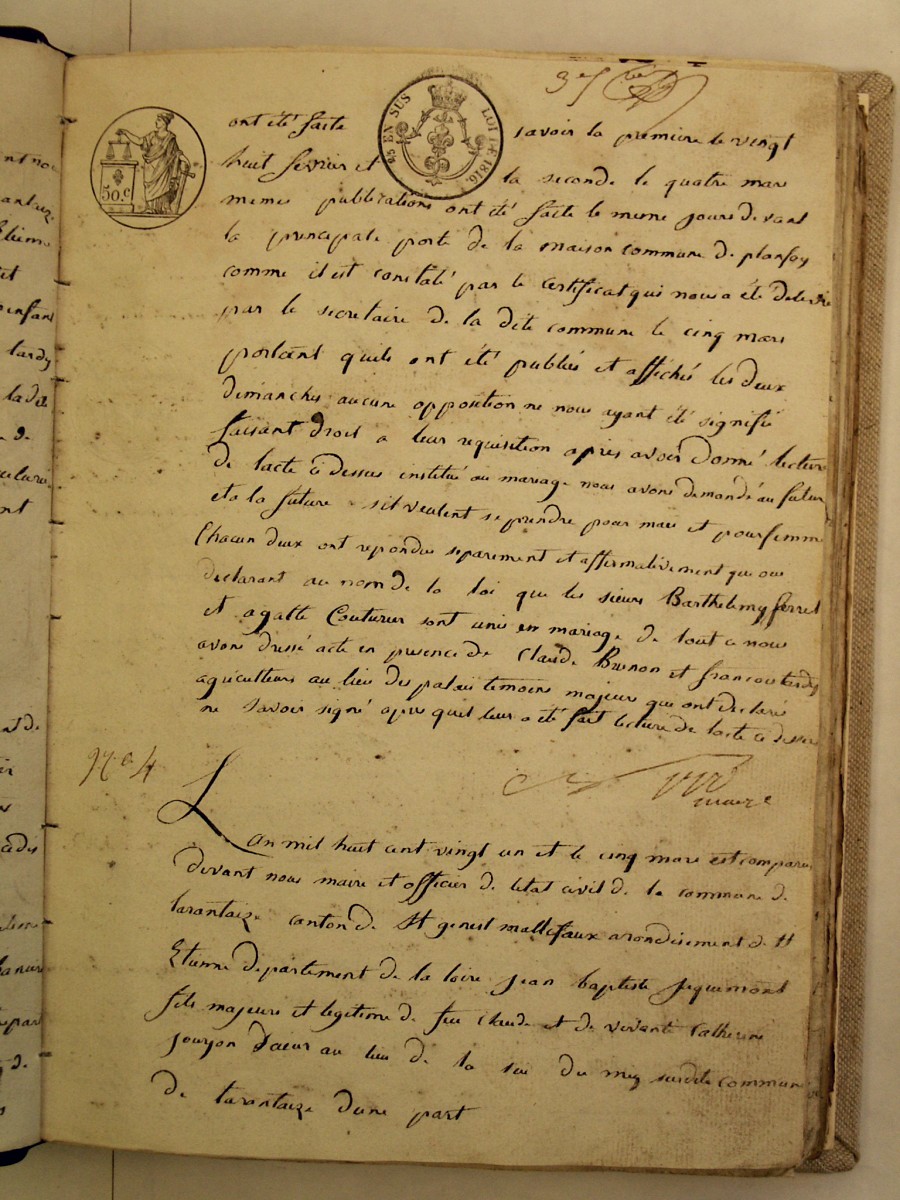 3e
50.c
25 EN SUS LOI DE 1816.
ont été faite savoir la premiere le vingt
huit fevrier et la seconde le quatre mars
memes publications ont été faite le meme jours devant
la principale porte de la maison commune de planfoy
comme il est constaté par le certificat qui nous a été delivré
par le secretaire de la dite commune le cinq mars
portant quils ont été publiés et affichés les deux
dimanches aucune opposition ne nous ayant été signifié
faisant droit a leur requisition apres avoir donné lecture
de lacte ci dessus institué au mariage nous avons demandé au futur
et a la future sil veulent se prendre pour mari et pour femme
chacun deux ont repondus separement et affirmativement que oui
declarant au nom de la loi que les sieurs Barthelemy ferret
et agatte Couturier sont unis en mariage de tout ce nous
avons dressé acte en presence de Claude Brunon et francois tardy
agriculteurs au lieu du palais temoins majeurs qui ont declaré
ne savoir signé apres quil leur a été fait lecture de lacte ci dessus
maire
No 4
Lan mil huit cent vingt un et le cinq mars est comparu
devant nous maire et officier de letat civil de la commune de
tarantaize canton de St genest mallifaux arondisement de St
Etienne departement de la loire jean baptiste
fils majeurs et legitime de feu Claude et de vivant Catherine
jouzon au lieu de la du susdite commune
de tarantaize dune part